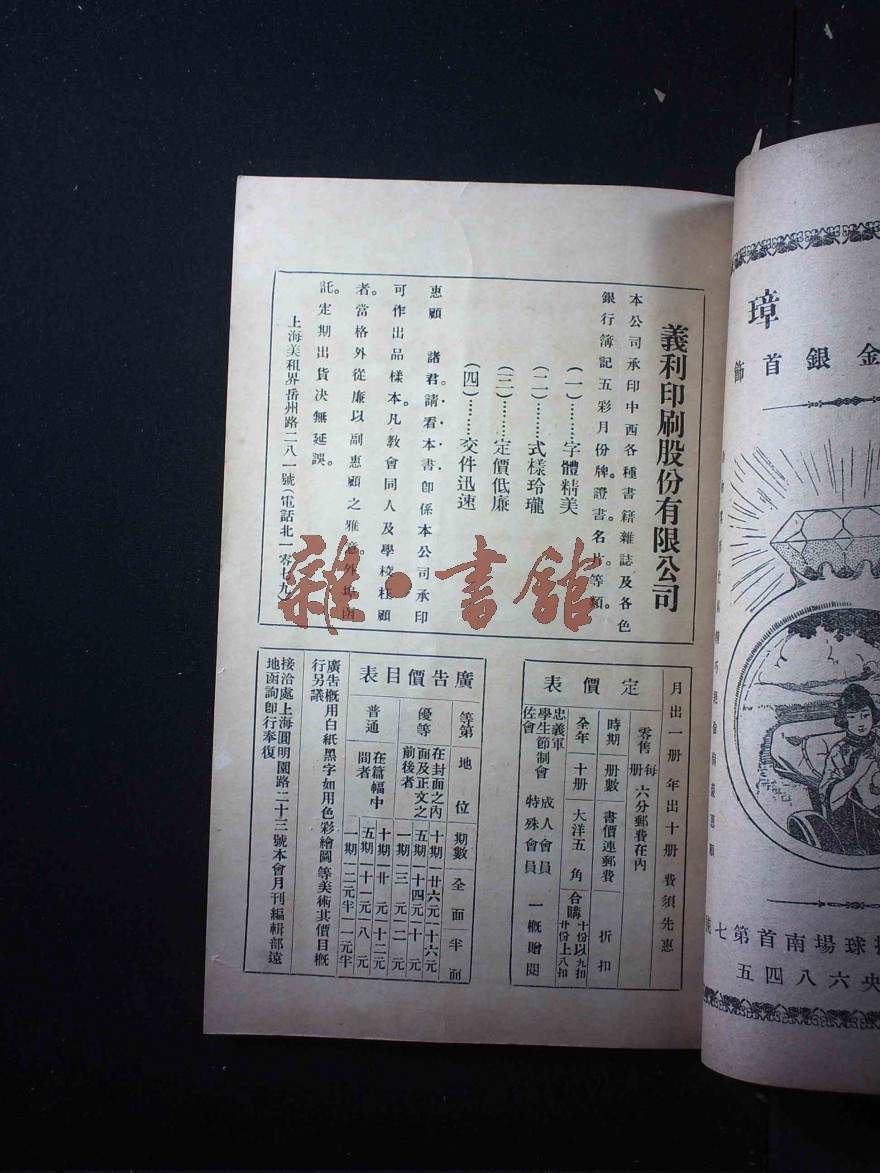 義利印刷股份有限公司
本公司承印中西各種書籍雜誌及各色
銀行簿記五彩月份牌。證書。名片。等類。
(一)……字體精美
(二)……式樣玲瓏
(三)……定價低廉
(四)……交件迅速
惠顧 諸君。請看本書。即係本公司承印
可作出品樣本。凡教會同人及學校枉顧
者。當格外從廉以副惠顧之雅意。外埠函
託。定期出貨決無延誤。
上海美租界岳州路二八一號(電話北一零七九)
定價表
月出一册 年出十册 費須先惠
零售 每册 六分郵費在內
時期 册數 書價連郵費 折扣
全年 十册 大洋五角 合購 十份以九扣 廿份上八扣
忠義軍 學生節制會 佐會 成人會員 特殊會員 一概贈閱
廣告價目表
等第 地位 期數 全面 半面
優等 在封面之內面及正文之前後者 十期 廿六元 十六元
五期 十四元 十元
一期 三元 二元
普通 在篇幅中間者 十期 廿元 十二元
五期 十一元 八元
一期 二元半 一元半
廣告概用白紙黑字如用色彩繪圖等美術其價目概
行另議
接洽處上海圓明園路二十三號本會月刊編輯部遠
地函詢即行奉復
璋
金銀首飾
球場南首第七號
央六八四五
雜·書館